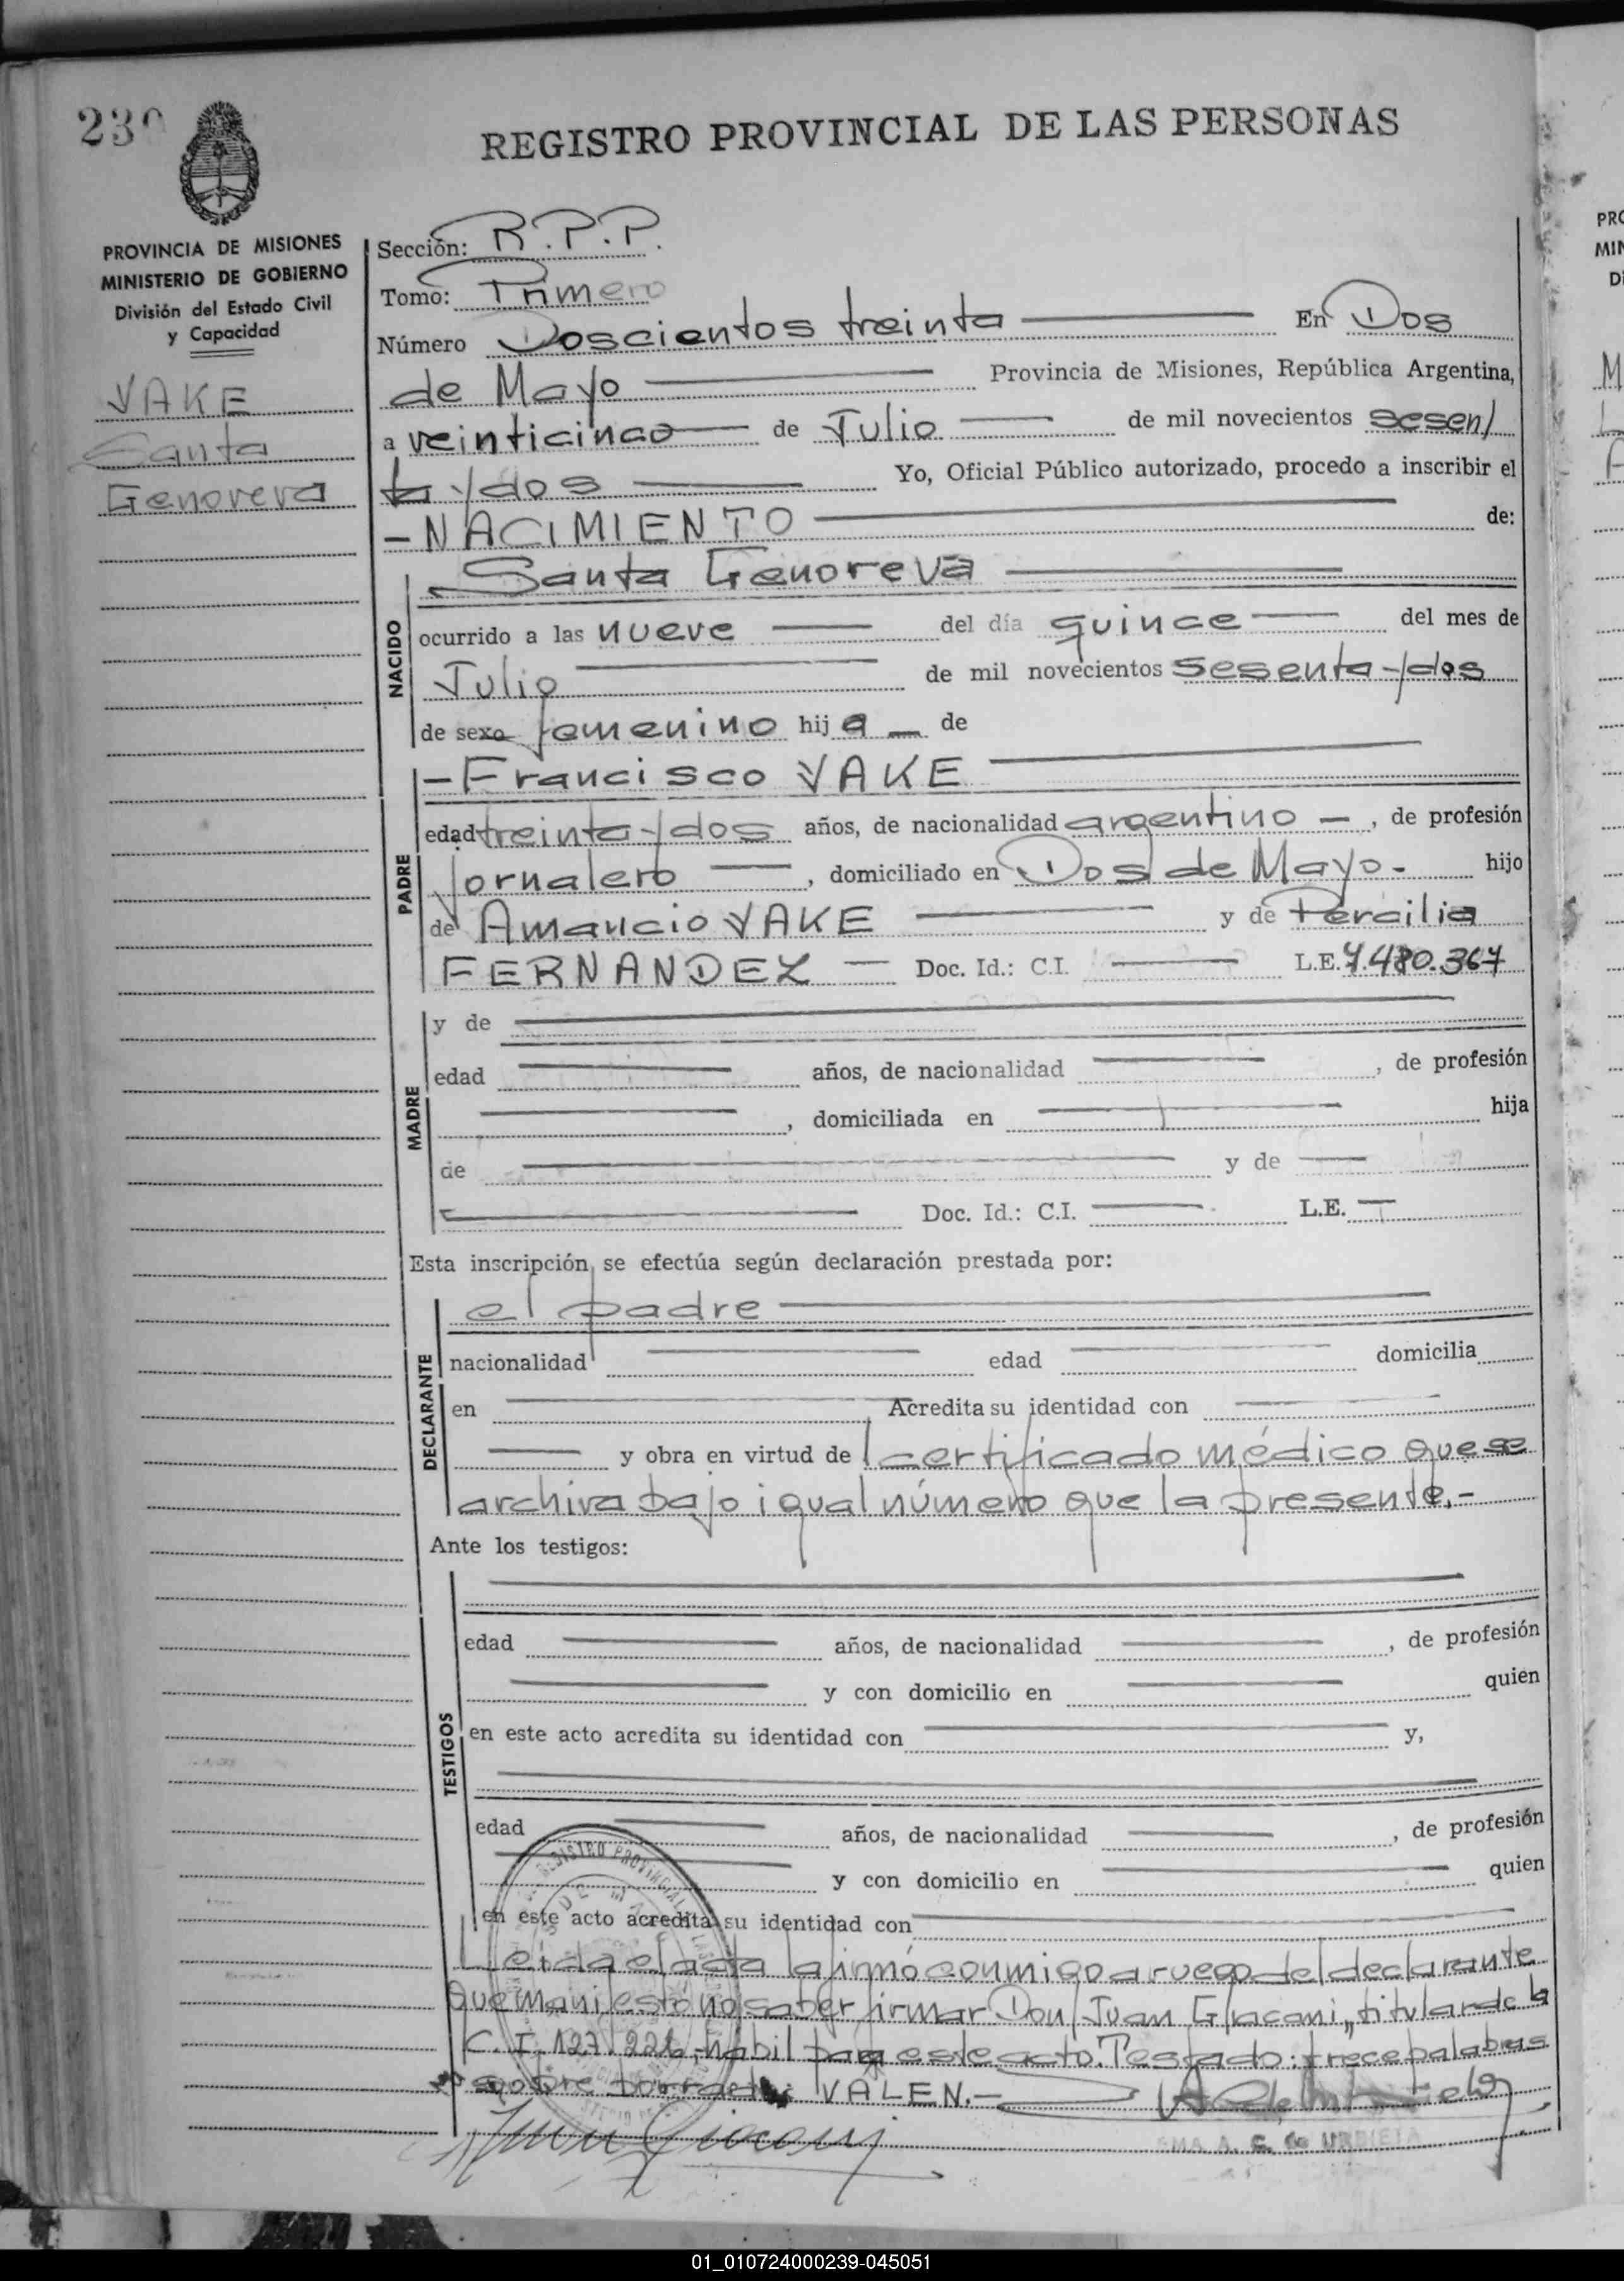 230
REGISTRO PROVINCIAL DE LAS PERSONAS
PROVINCIA DE MISIONES
MINISTERIO DE GOBIERNO
División del Estado Civil
y Capacidad
VAKE
Santa
Genoveva
Sección: R.P.P.
Tomo: Primero
Número Doscientos treinta En Dos
de Mayo Provincia de Misiones, República Argentina,
a veinticinco de Julio de mil novecientos sesen/
ta y dos Yo, Oficial Público autorizado, procedo a inscribir el
-NACIMIENTO de:
Santa Genoveva
NACIDO
ocurrido a las nueve del día quince del mes de
Julio de mil novecientos sesenta y dos
de sexo femenino hija de
-Francisco VAKE
PADRE
edad treinta y dos años, de nacionalidad argentino —, de profesión
jornalero, domiciliado en Dos de Mayo.- hijo
de Amancio VAKE y de Percilia
FERNANDEZ Doc. Id.: C.I. L.E. 7.480.367
MADRE
y de
edad años, de nacionalidad , de profesión
, domiciliada en hija
de y de
Doc. Id.: C.I. L.E.
Esta inscripción se efectúa según declaración prestada por:
el padre
DECLARANTE
nacionalidad edad domicilia
en Acredita su identidad con
y obra en virtud de l certificado médico que se
archiva bajo igual número que la presente.-
Ante los testigos:
TESTIGOS
edad años, de nacionalidad , de profesión
y con domicilio en quien
en este acto acredita su identidad con y,
edad años, de nacionalidad , de profesión
y con domicilio en quien
en este acto acredita su identidad con
Leida el acta la firmó conmigo a ruego del declarante
que manifestó no saber firmar Don Juan Giacani, titular de la
C.I. 127.226, hábil para este acto. Testado: trece palabras
sobre borrado: VALEN.-
C. de URRIETA
PRO
MIN
01_010724000239-045051